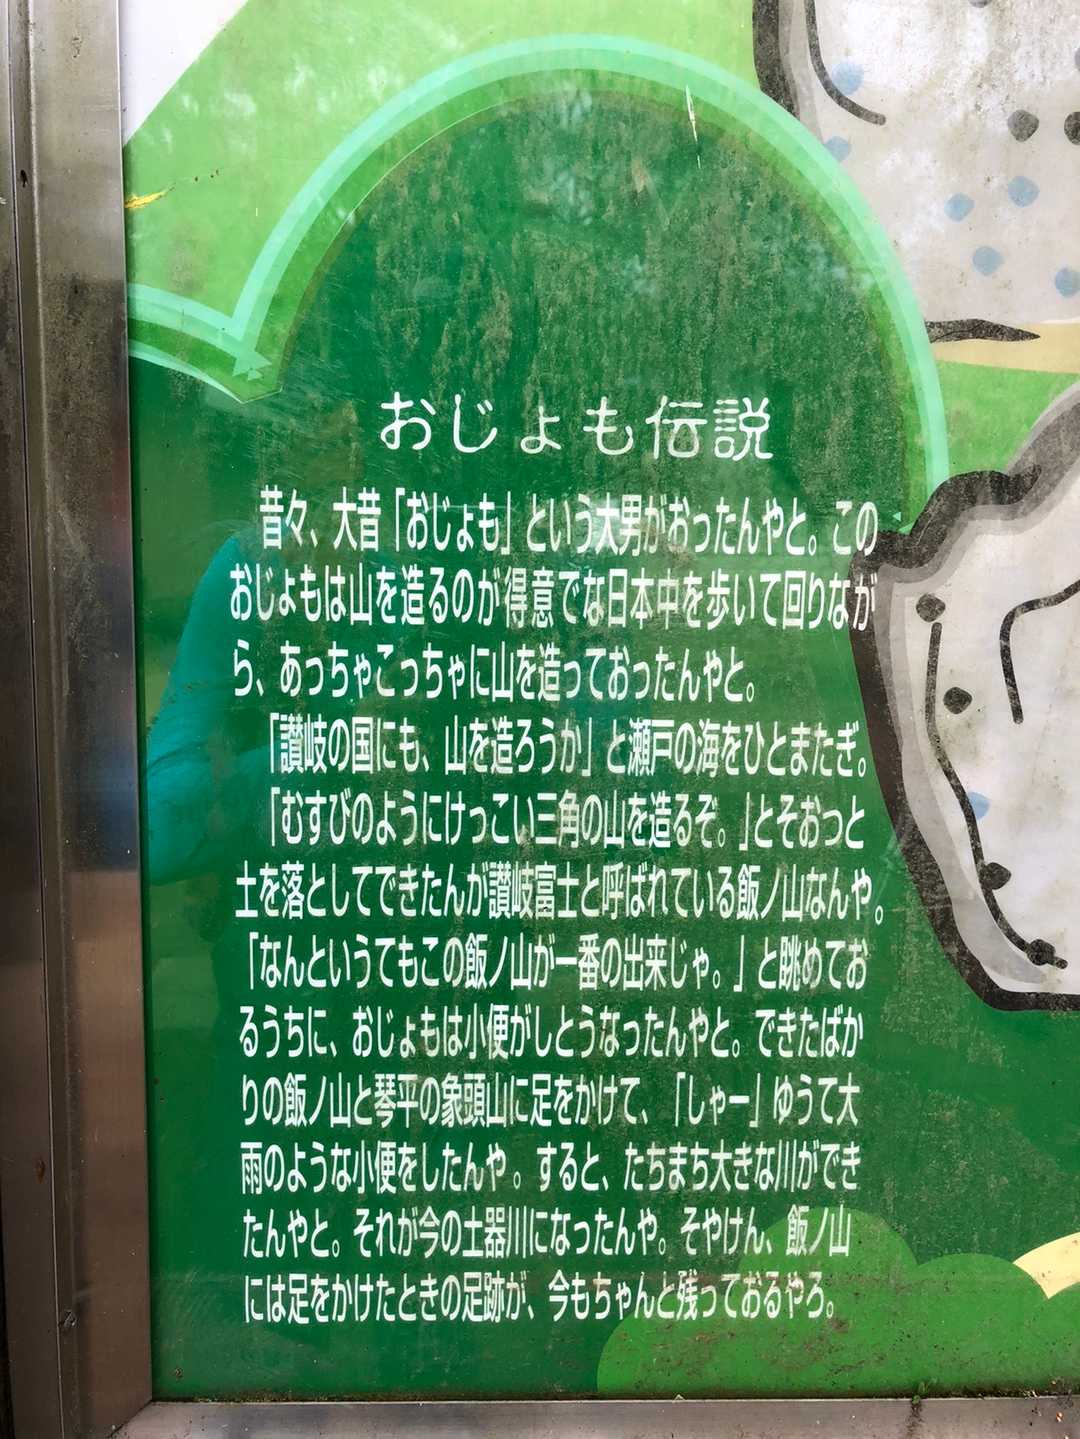 おじょも伝説
昔々、大昔「おじょも」という大男がおったんやと。この
おじょもは山を造るのが得意でな日本中を歩いて回りなが
ら、あっちゃこっちゃに山を造っておったんやと。
「讃岐の国にも、山を造ろうか」と瀬戸の海をひとまたぎ。
「むすびのようにけっこい三角の山を造るぞ。」とそおっと
土を落としてできたんが讃岐富士と呼ばれている飯ノ山なんや。
「なんというてもこの飯ノ山が一番の出来じゃ。」と眺めてお
るうちに、おじょもは小便がしとうなったんやと。できたばか
りの飯ノ山と琴平の象頭山に足をかけて、「しゃー」ゆうて大
雨のような小便をしたんや。すると、たちまち大きな川ができ
たんやと。それが今の土器川になったんや。そやけん、飯ノ山
には足をかけたときの足跡が、今もちゃんと残っておるやろ。